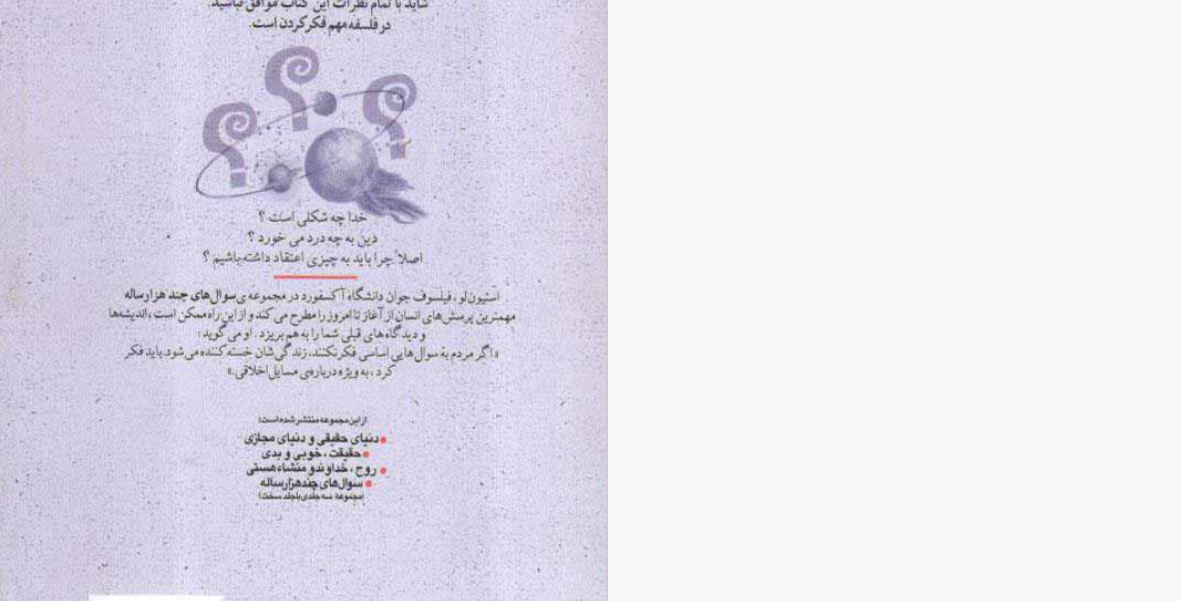 شاید با تمام نظرات این کتاب موافق نباشید.
در فلسفه مهم فکر کردن است.
خدا چه شکلی است ؟
دین به چه درد می خورد ؟
اصلاً چرا باید به چیزی اعتقاد داشته باشیم ؟
استیون لو ، فیلسوف جوان دانشگاه آکسفورد در مجموعه ی سوال های چند هزار ساله
مهمترین پرسش های انسان از آغاز تا امروز را مطرح می کند و از این راه ممکن است ، اندیشه ها
و دیدگاه های قبلی شما را به هم بریزد . او می گوید :
«اگر مردم به سوال هایی اساسی فکر نکنند، زندگی شان خسته کننده می شود. باید فکر
کرد ، به ویژه درباره ی مسایل اخلاقی.»
از این مجموعه منتشر شده است:
● دنیای حقیقی و دنیای مجازی
● حقیقت ، خوبی و بدی
● روح ، خداوند و منشاء هستی
● سوال های چند هزار ساله
(مجموعه سه جلدی با جلد سخت)